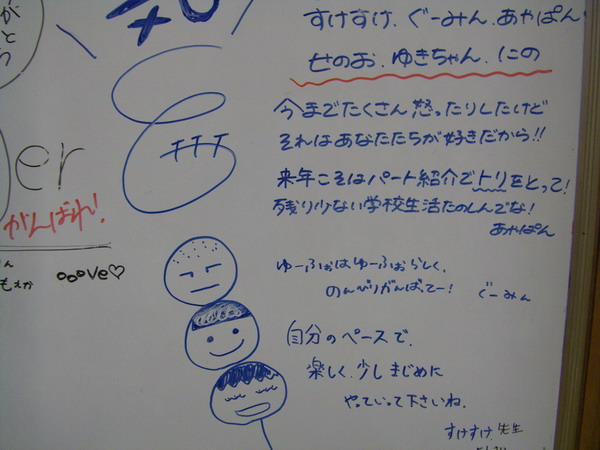 すけすけ.ぐーみん.あやぱん
せのお.ゆきちゃん.にの
今までたくさん怒ったりしたけど
それはあなたたちが好きだから!!
来年こそはパート紹介でトリをとって!
残り少ない学校生活たのしんでな!
あやぱん
ゆーふぉはゆーふぉらしく.
のんびりがんばてー!
ぐーみん
自分のペースで.
楽しく.少しまじめに
やっていって下さいね.
すけすけ先生
er
がんばれ!
もえか
love♡